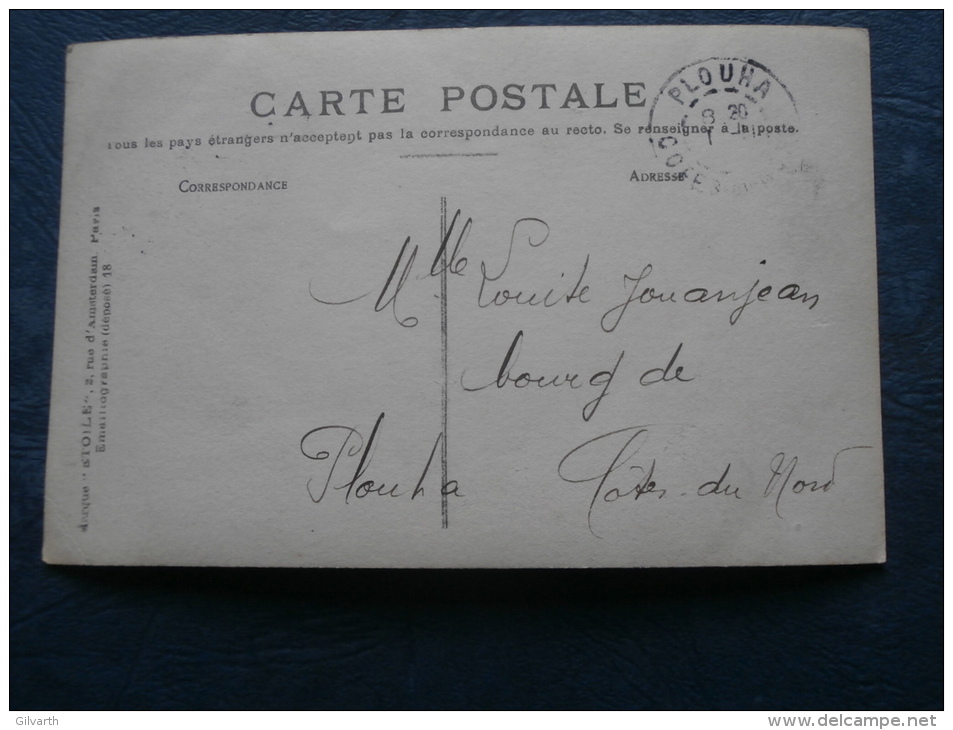 CARTE POSTALE
Tous les pays étrangers n'acceptent pas la correspondance au recto. Se renseigner à la poste.
CORRESPONDANCE
ADRESSE
PLOUHA
8 20
1
Mlle Louise Jouanjean
bourg de
Plouha Côtes-du Nord
Marque "ETOILE", 2, rue d'Amsterdam. Paris
Emailiographie (déposé) 18
Gilvarth
www.delcampe.net